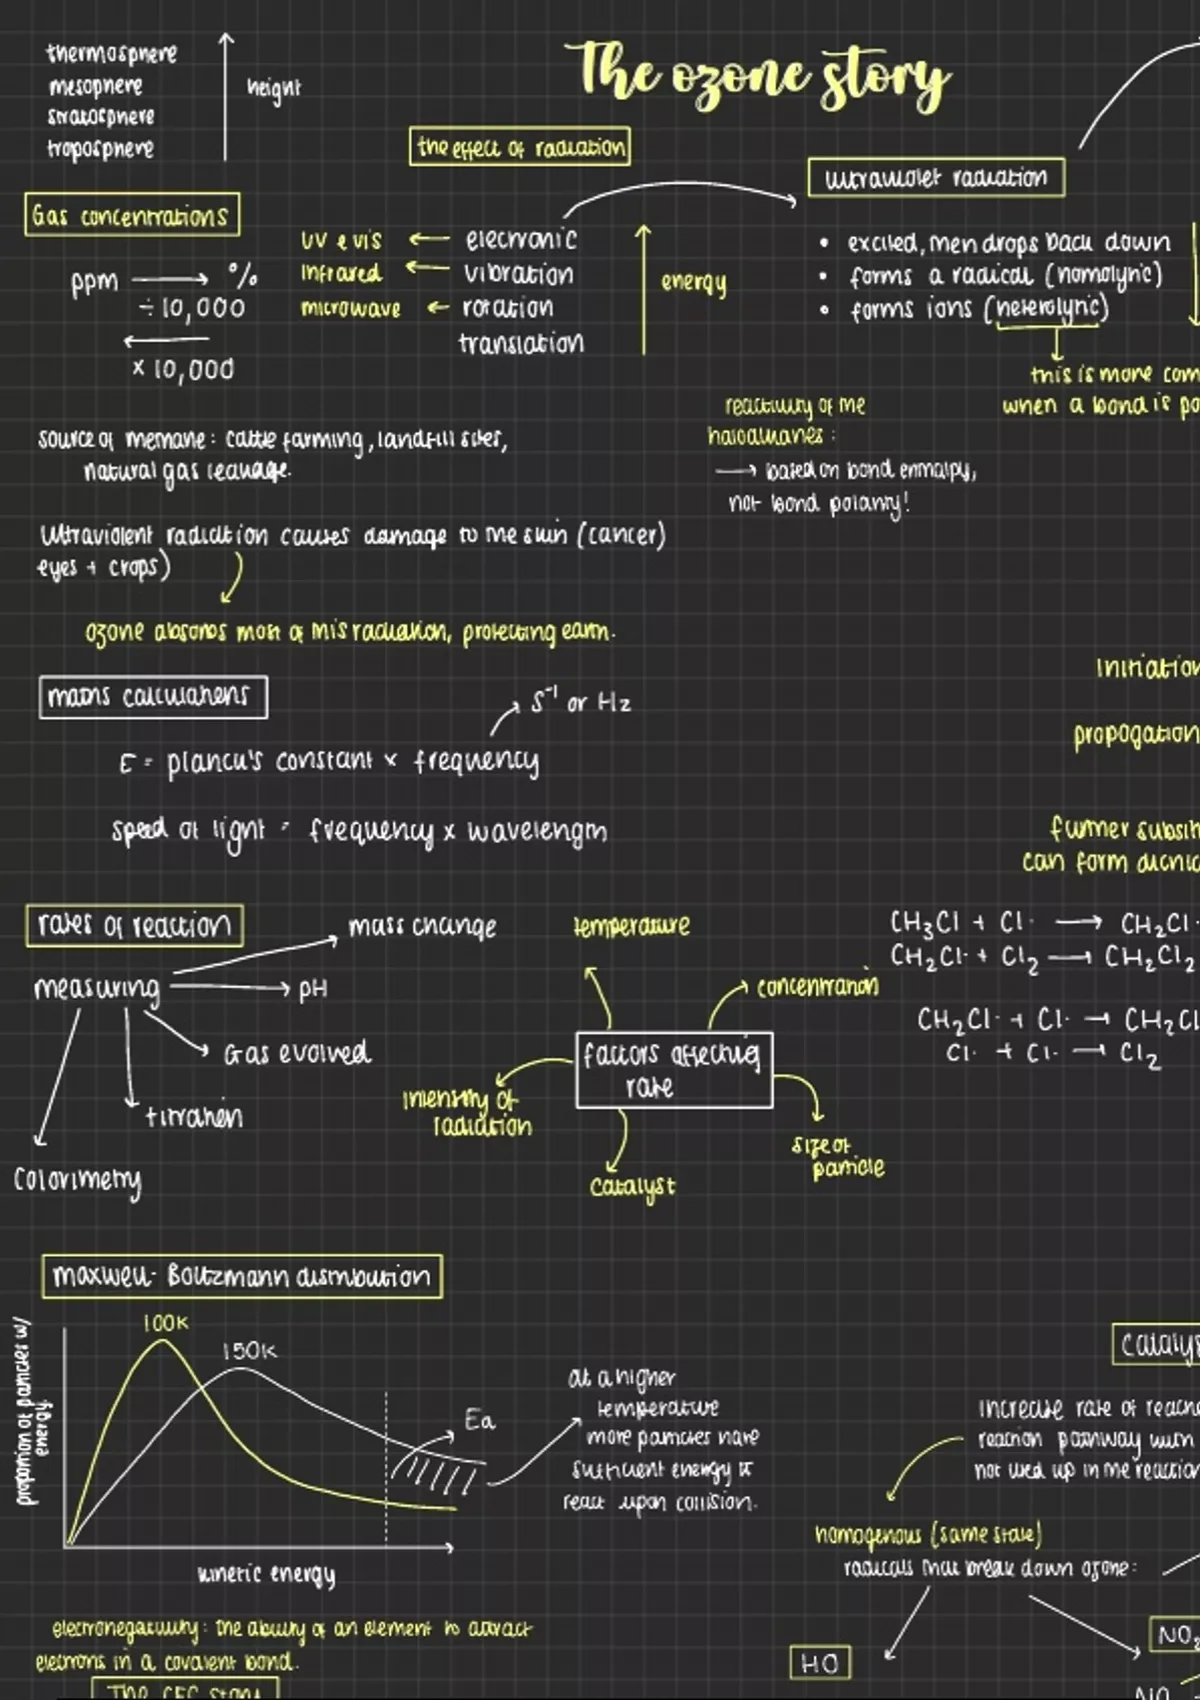 The ozone story
thermosphere
mesophere
stratosphere
troposphere
height
the effect of radiation
ultraviolet radiation
Gas concentrations
ppm → %
÷ 10,000
× 10,000
UV & vis ← electronic
infrared ← vibration
microwave ← rotation
translation
energy
• excited, then drops back down
• forms a radical (homolytic)
• forms ions (heterolytic)
this is more com
when a bond is po
reactivity of the
haloalkanes :
→ based on bond enthalpy,
not bond polarity!
source of methane: cattle farming, landfill sites,
natural gas leakage.
Ultraviolent radiation causes damage to the skin (cancer)
eyes + crops)
ozone absorbs most of this radiation, protecting earth.
maths calculations
s⁻¹ or Hz
E = planck's constant × frequency
speed of light = frequency × wavelength
initiation
propogation
further substit
can form dichlo
rates of reaction
measuring
mass change
pH
Gas evolved
titration
Colorimetry
temperature
concentration
factors affecting
rate
intensity of
radiation
size of
particle
Catalyst
CH₃Cl + Cl· → CH₂Cl·
CH₂Cl· + Cl₂ → CH₂Cl₂
CH₂Cl· + Cl· → CH₂Cl
Cl· + Cl· → Cl₂
maxwell-Boltzmann distribution
proportion of particles w/
energy
100K
150K
Ea
kinetic energy
at a higher
temperature
more particles have
sufficient energy to
react upon collision.
catalys
increase rate of reactio
reaction pathway with
not used up in the reaction
homogenous (same state)
radicals that break down ozone:
HO
NO₂
NO
electronegativity: the ability of an element to attract
electrons in a covalent bond.
The CFC story